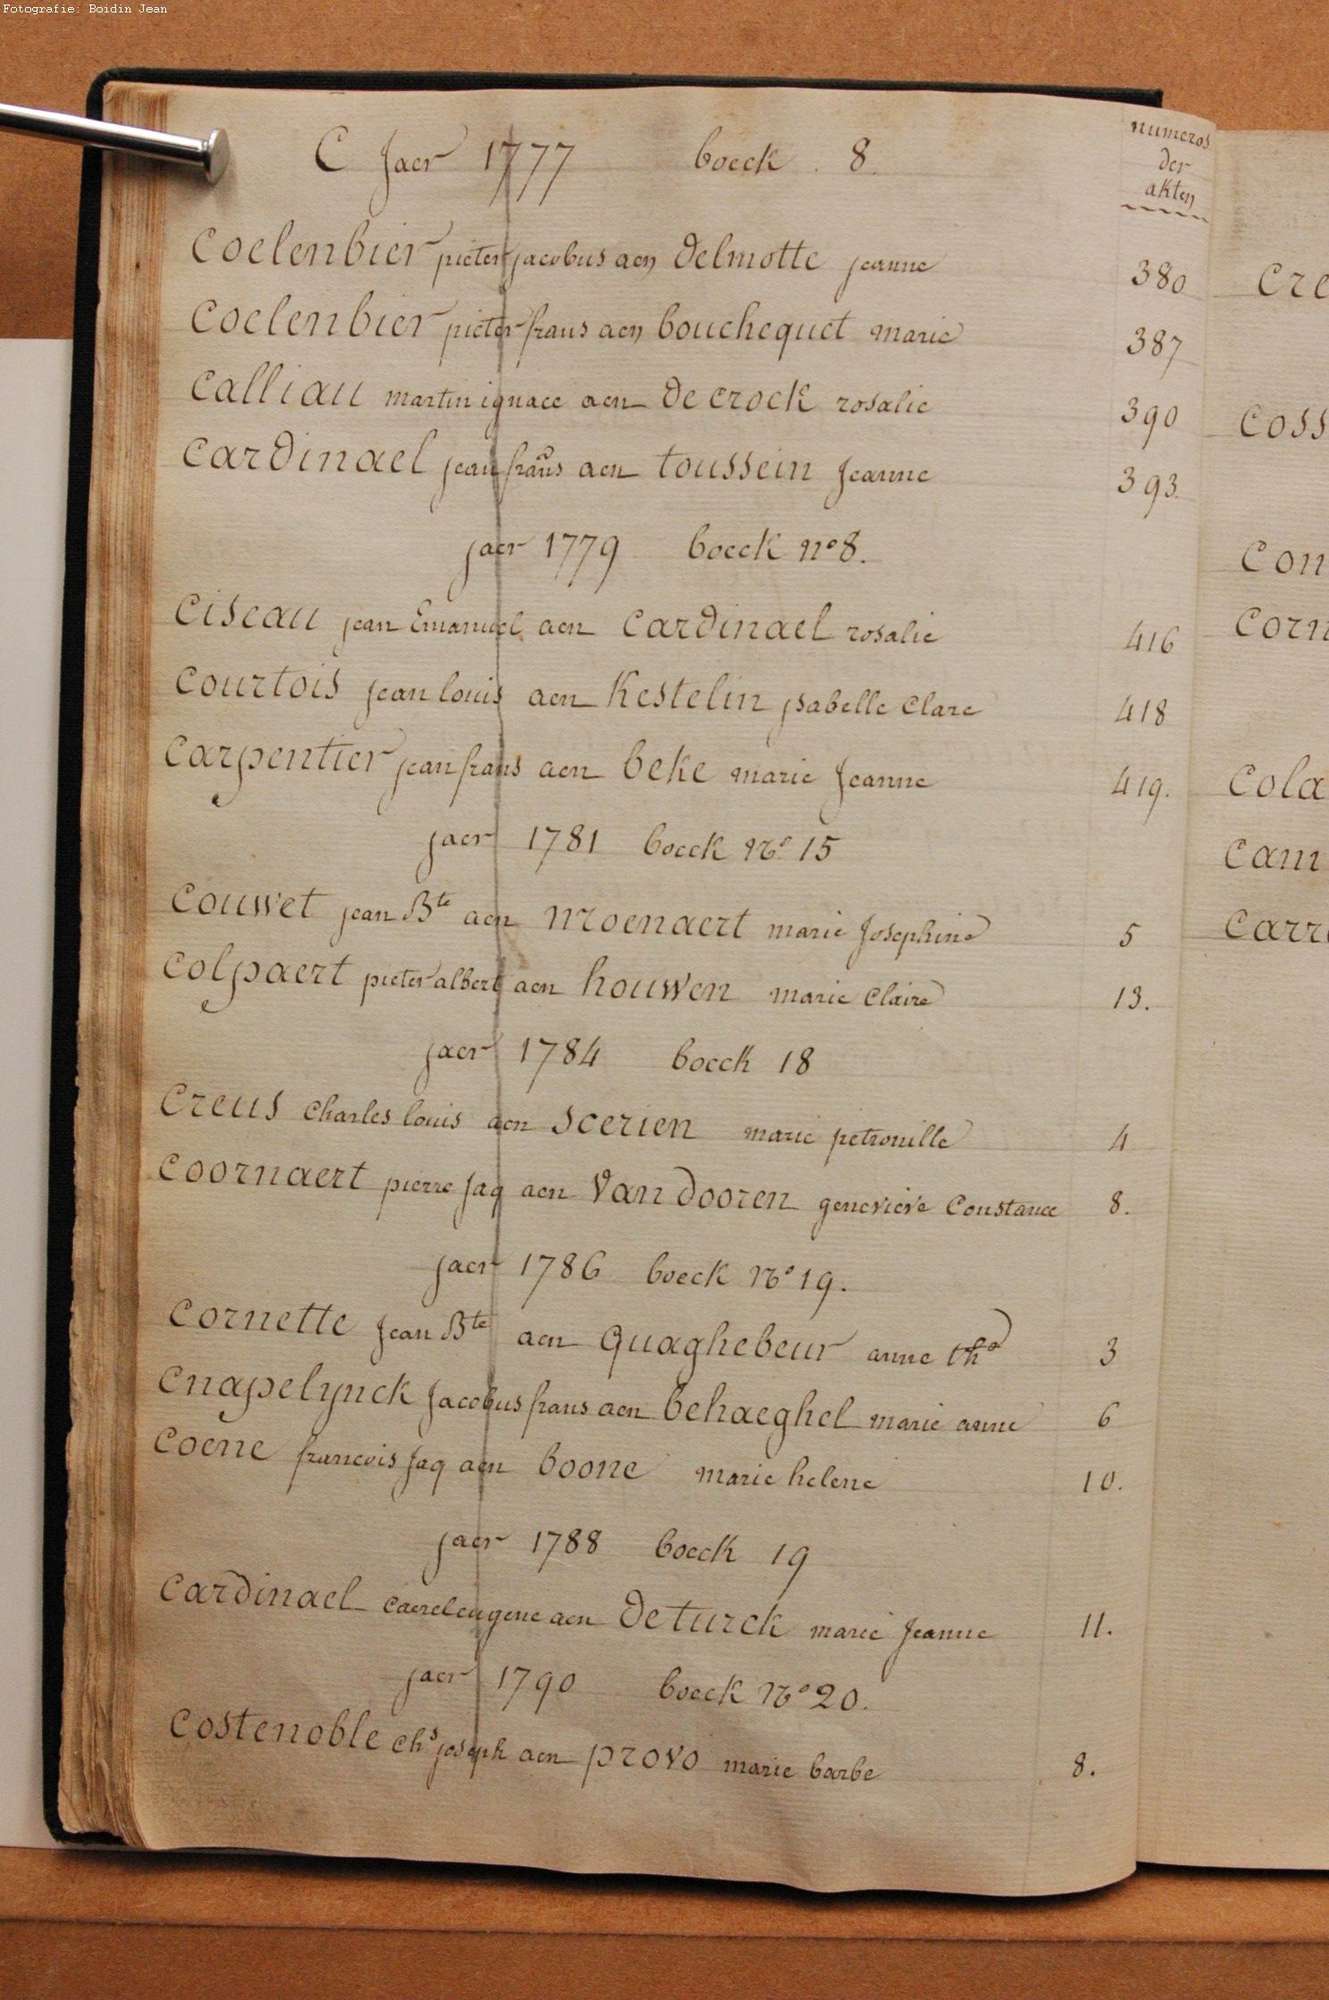 Fotografie: Boidin Jean
C Jaer 1777 boeck 8.
numeros
der
akten
Coelenbier pieter jacobus aen Delmotte jeanne 380
Coelenbier pieter frans aen bouchequet marie 387
Calliau martin ignace aen De Crock rosalie 390
Cardinael jean frans aen toussein Jeanne 393.
jaer 1779 boeck no 8.
Ciseau jean Emanuel aen Cardinael rosalie 416
Courtois jean louis aen Kestelin ysabelle Clare 418
Carpentier jean frans aen beke marie Jeanne 419.
jaer 1781 boeck No 15
Couwet jean Bte aen Mroenaert marie Josephine 5
Colpaert pieter albert aen houwen marie Claire 13.
jaer 1784 boeck 18
Creus Charles louis aen Scerien marie petronille 4
Coornaert pierre Jaq aen Van dooren genevieve Constance 8.
jaer 1786 boeck No 19.
Cornette Jean Bte aen Quaghebeur anne the 3
Cnapelynck Jacobus frans aen behaeghel marie anne 6
Coene francois Jaq aen boone marie helene 10.
jaer 1788 boeck 19
Cardinael Caerel eugene aen De turck marie Jeanne 11.
jaer 1790 boeck No 20.
Costenoble Chs joseph aen provo marie barbe 8.
Cre
Coss
Con
Corn
Cola
Cam
Carr